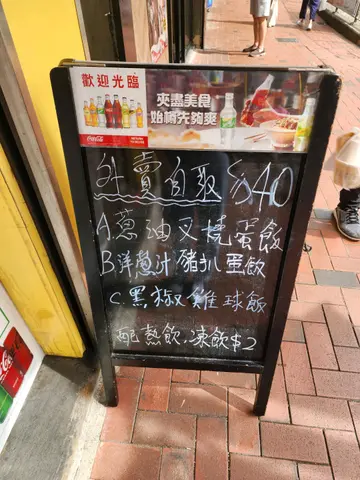 歡迎光臨
夾盡美食
始稱先夠爽
Coca-Cola
外賣自取 $40
A.蔥油叉燒蛋飯
B.洋蔥汁豬扒蛋飯
C.黑椒雞球飯
配熱飲.凍飲$2